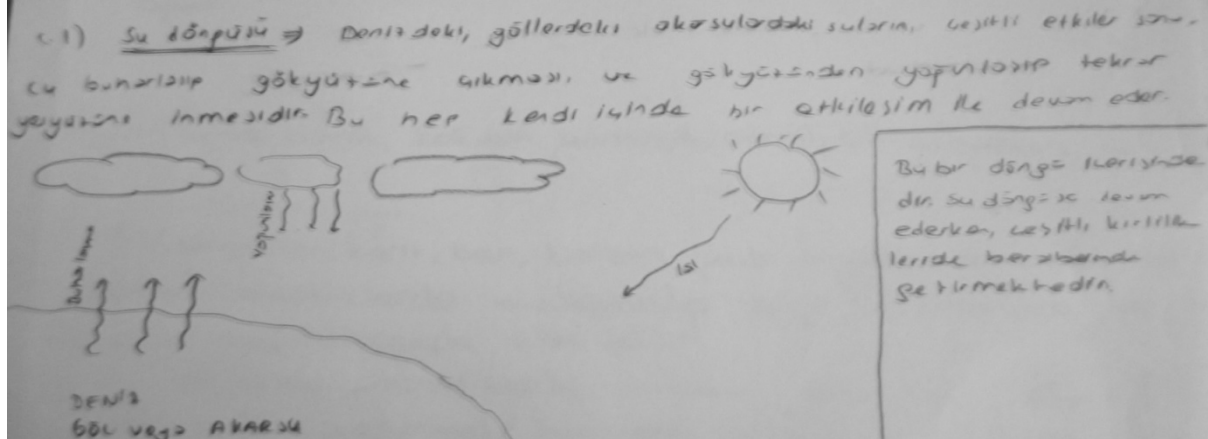 C1) Su döngüsü ⇒ Denizdeki, göllerdeki akarsulardaki suların, çeşitli etkiler sonu-
cu buharlaşıp gökyüzüne çıkması, ve gökyüzünden yoğunlaşıp tekrar
yeryüzüne inmesidir. Bu hep kendi içinde bir etkileşim ile devam eder.
Buharlaşma
Yoğunlaşma
Isı
Bu bir döngü içerisinde
dir. Su döngüsü devam
ederken, çeşitli kirlilik
leride beraberinde
getirmektedir.
DENİZ
GÖL veya AKARSU